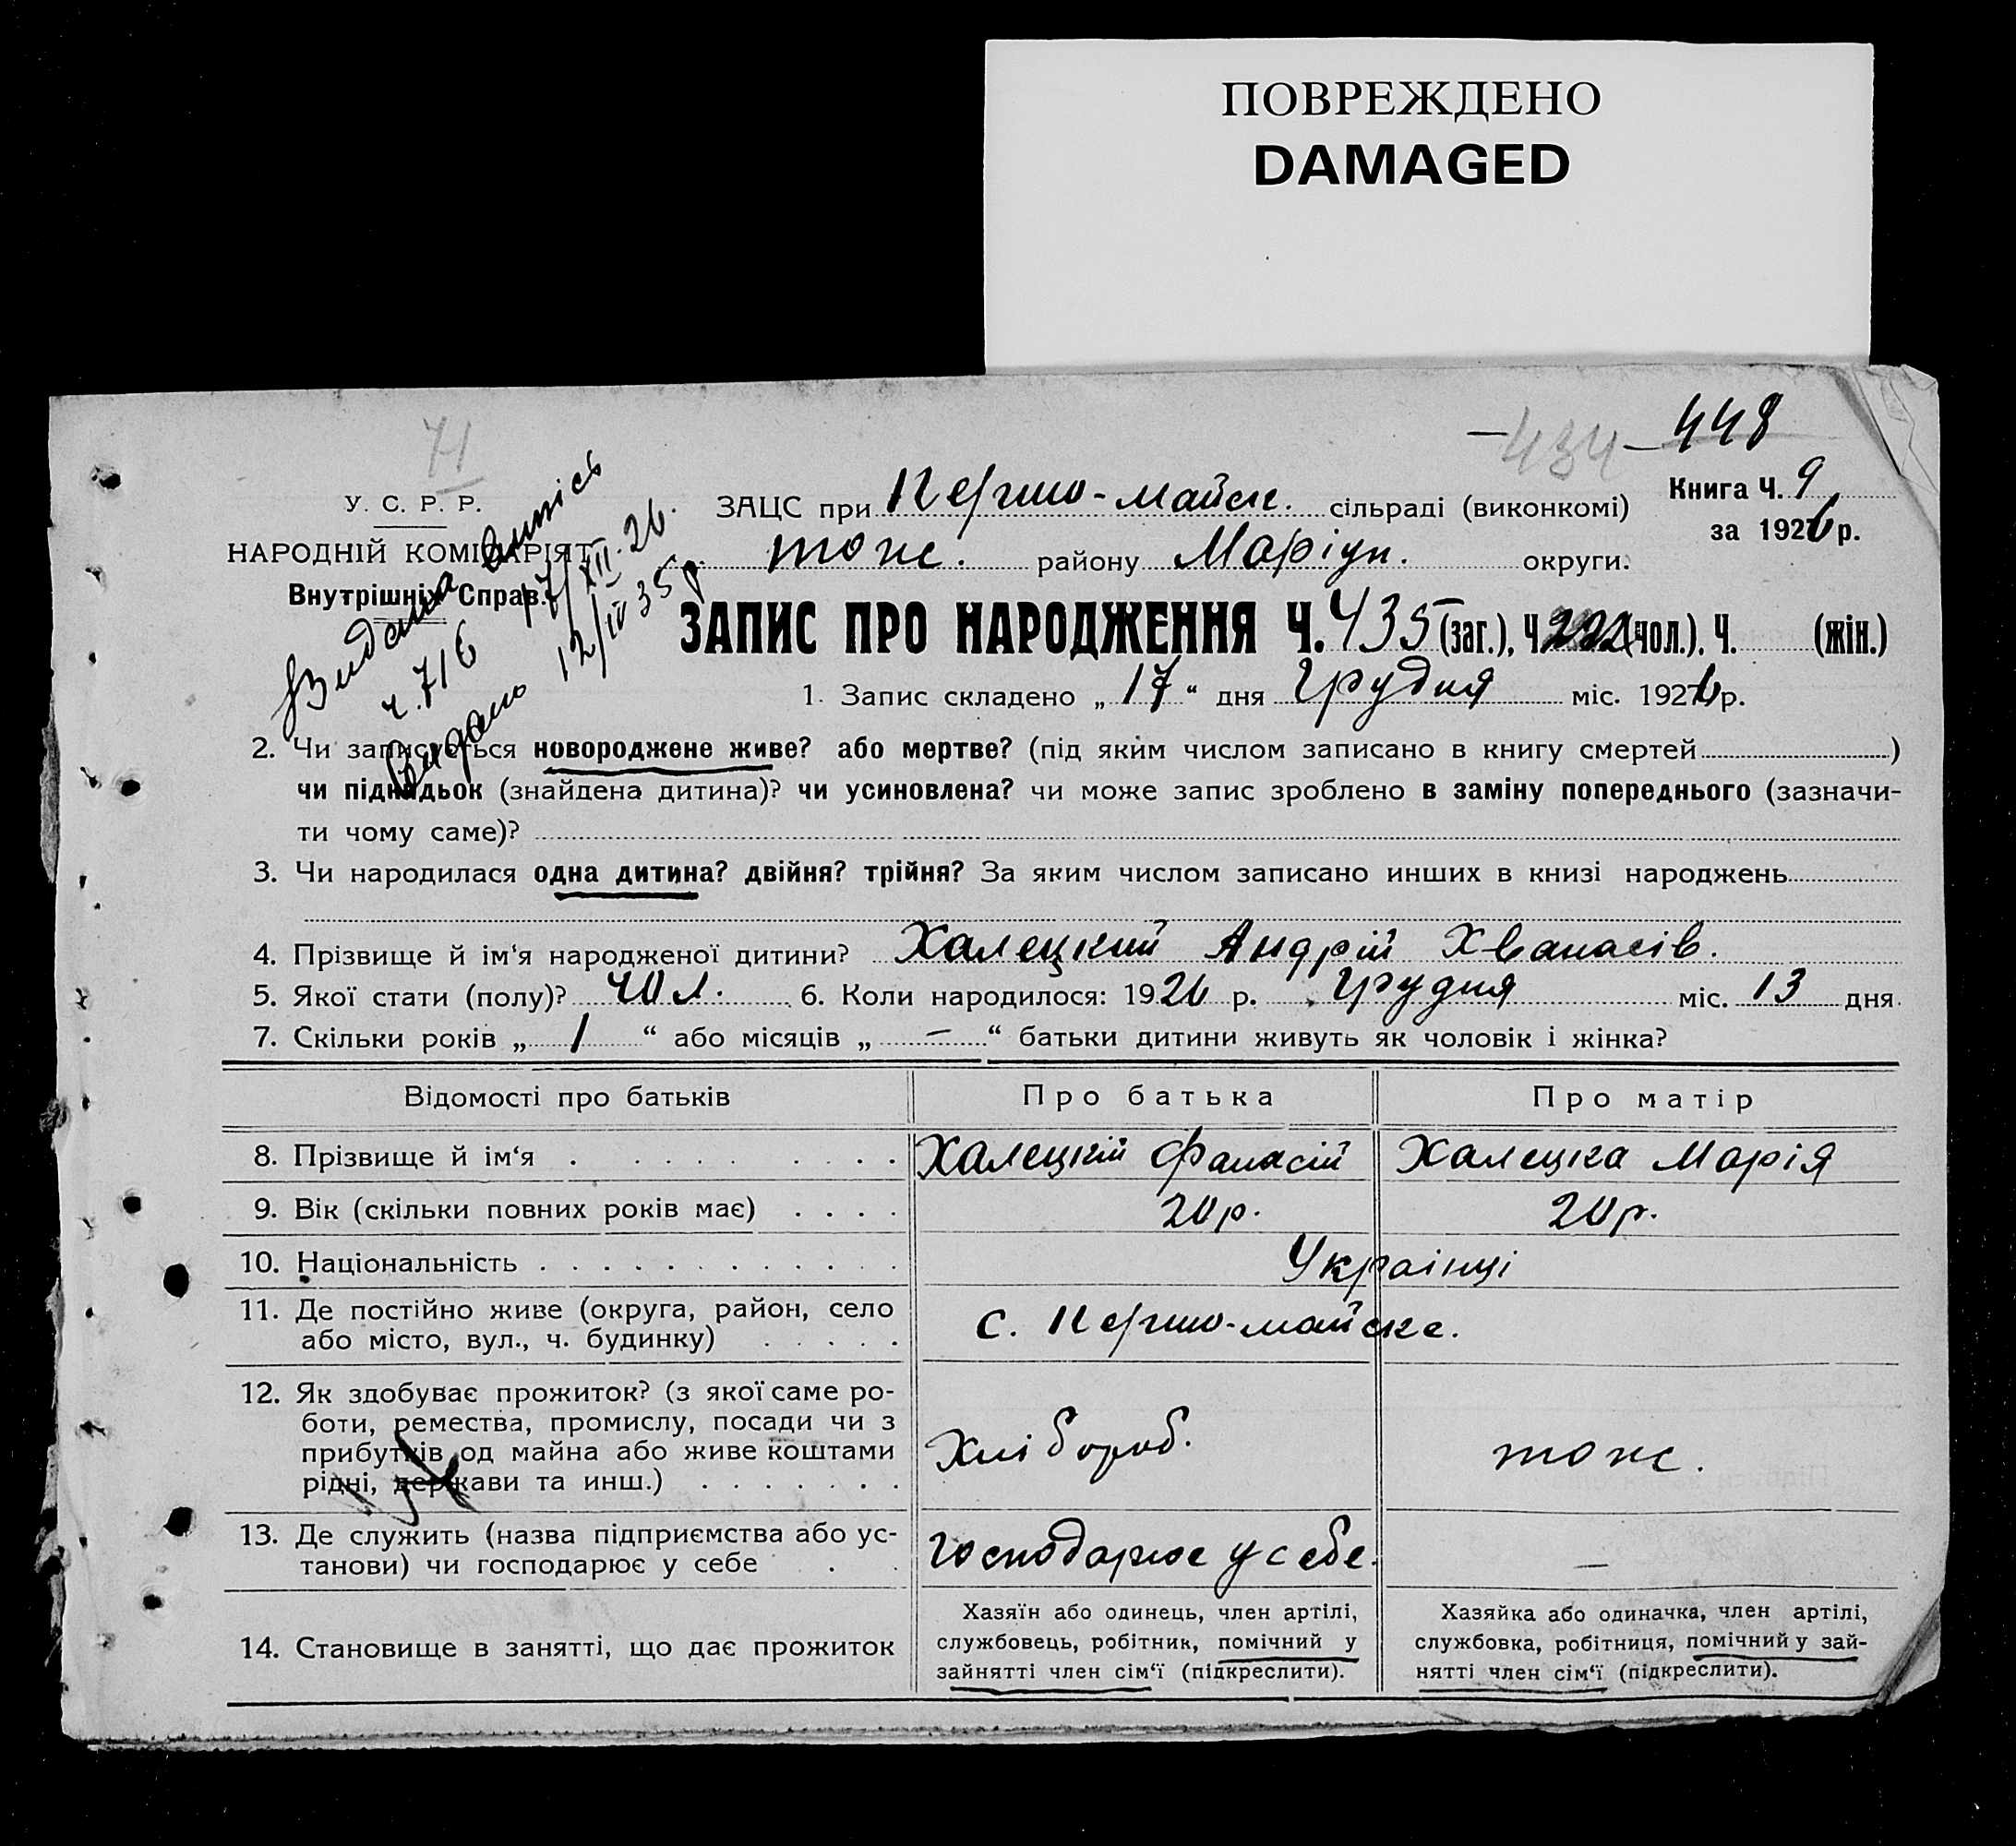 ПОВРЕЖДЕНО
DAMAGED
71
—434—448
У. С. Р. Р.
НАРОДНІЙ КОМІСАРІЯТ
Внутрішніх Справ.
Видана випись
ч. 716 17/XII-26.
Видано 12/IV 35р
ЗАЦС при Першо-майск. сільраді (виконкомі)
Книга Ч. 9
за 1926 р.
тож. району Маріуп. округи.
ЗАПИС ПРО НАРОДЖЕННЯ Ч. 435 (заг.), Ч. 222 (чол.). Ч. (жін.)
1. Запис складено „ 17 “ дня Грудня міс. 1926 р.
2. Чи записується новороджене живе? або мертве? (під яким числом записано в книгу смертей )
чи підкидьок (знайдена дитина)? чи усиновлена? чи може запис зроблено в заміну попереднього (зазначи-
ти чому саме)?
3. Чи народилася одна дитина? двійня? трійня? За яким числом записано инших в книзі народжень
4. Прізвище й ім‘я народженої дитини? Халецкий Андрій Хванасів.
5. Якої стати (полу)? чол. 6. Коли народилося: 1926 р. Грудня міс. 13 дня.
7. Скільки років „ 1 “ або місяців „ — “ батьки дитини живуть як чоловік і жінка?
Відомості про батьків Про батька Про матір
8. Прізвище й ім‘я Халецкій Фанасій Халецка Марія
9. Вік (скільки повних років має) 20р. 20р.
10. Національність Українці
11. Де постійно живе (округа, район, село
або місто, вул., ч. будинку) с. Першо-майске.
12. Як здобуває прожиток? (з якої саме ро-
боти, ремества, промислу, посади чи з
прибутків од майна або живе коштами
рідні, держави та инш.) Хлібороб. тож.
13. Де служить (назва підприємства або ус-
танови) чи господарює у себе Господарює у себе. —
14. Становище в занятті, що дає прожиток
Хазяїн або одинець, член артілі,
службовець, робітник, помічний у
зайнятті член сім‘ї (підкреслити).
Хазяйка або одиначка, член артілі,
службовка, робітниця, помічний у зай-
нятті член сім‘ї (підкреслити).